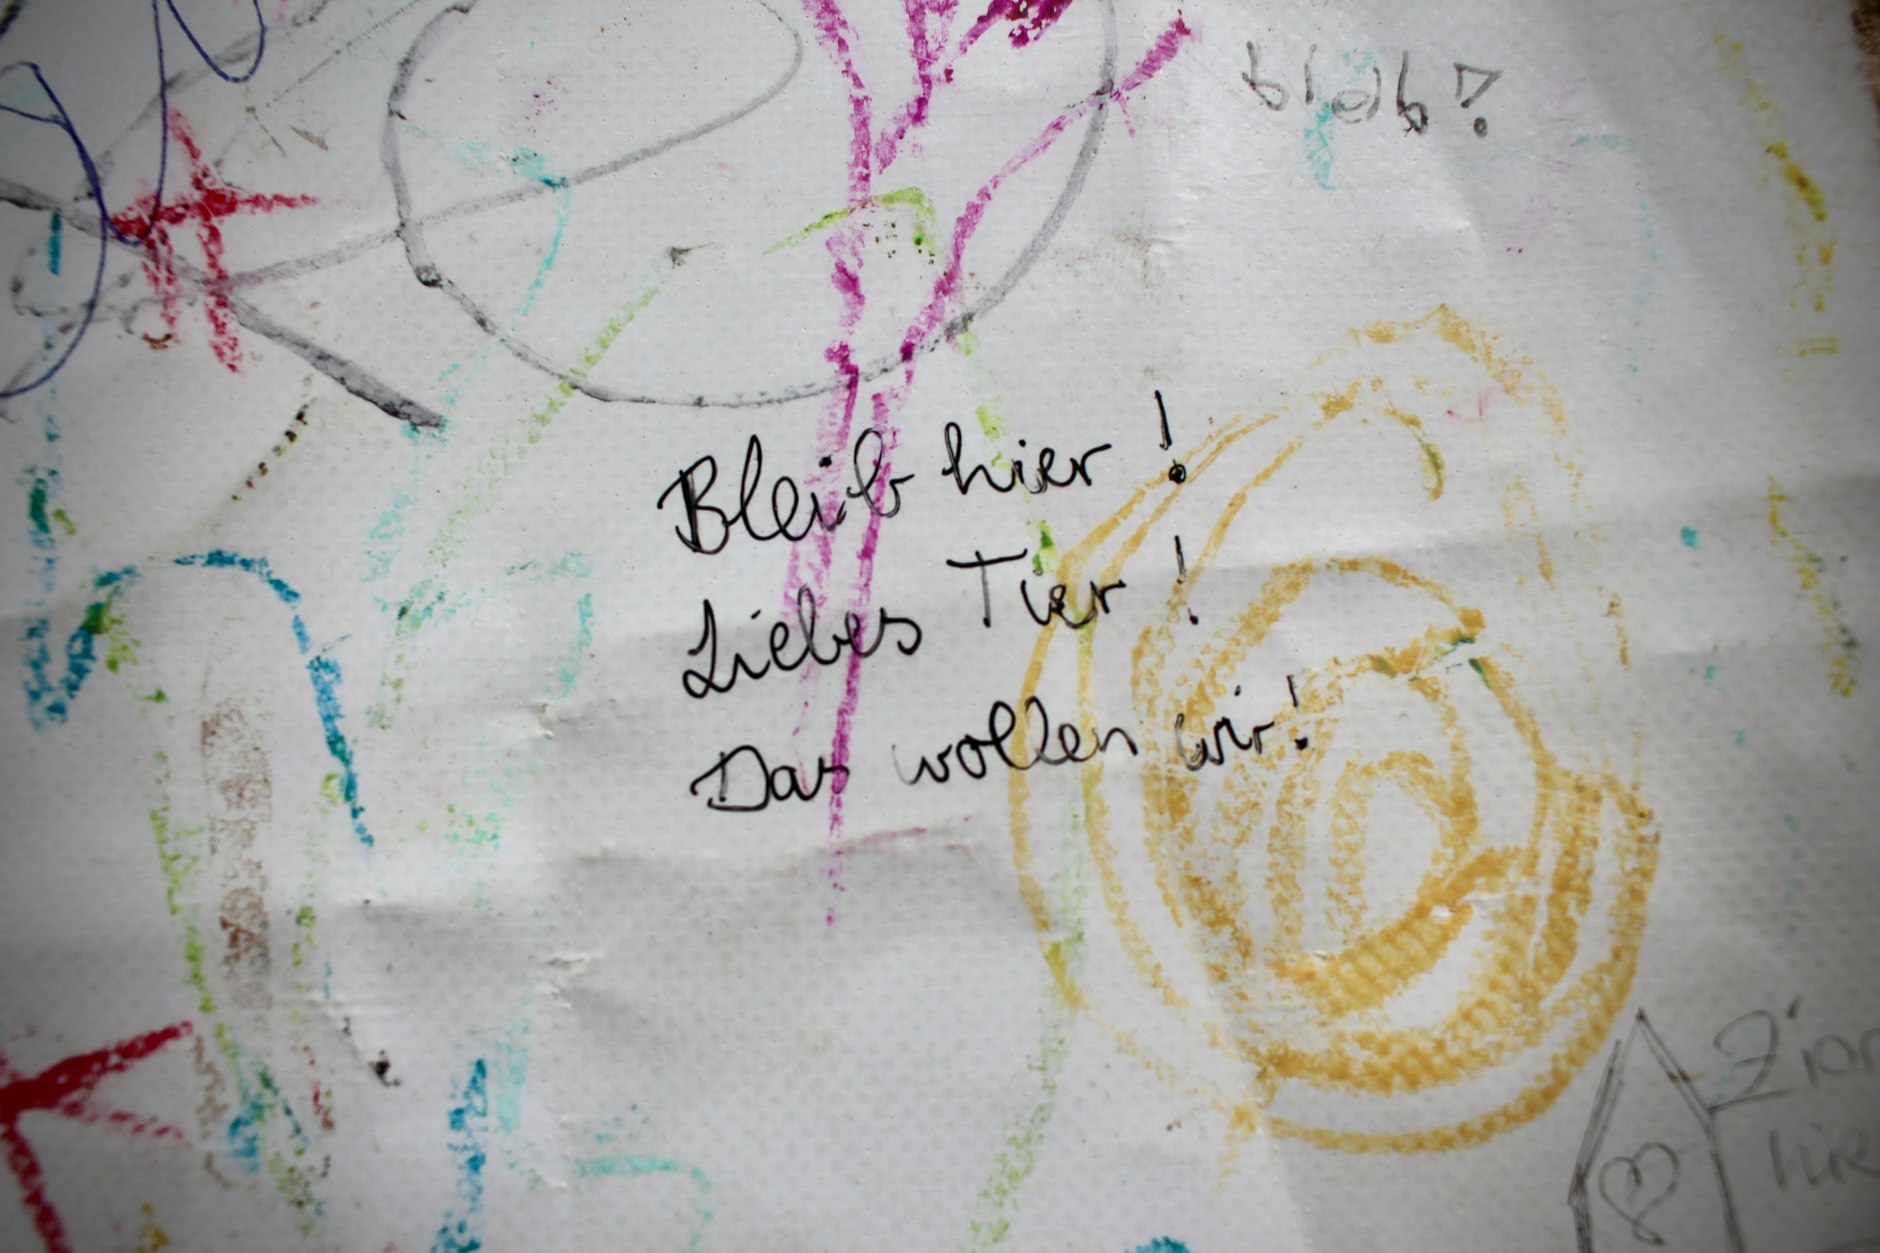 bleib?
Bleib hier!
Liebes Tier!
Das wollen wir!